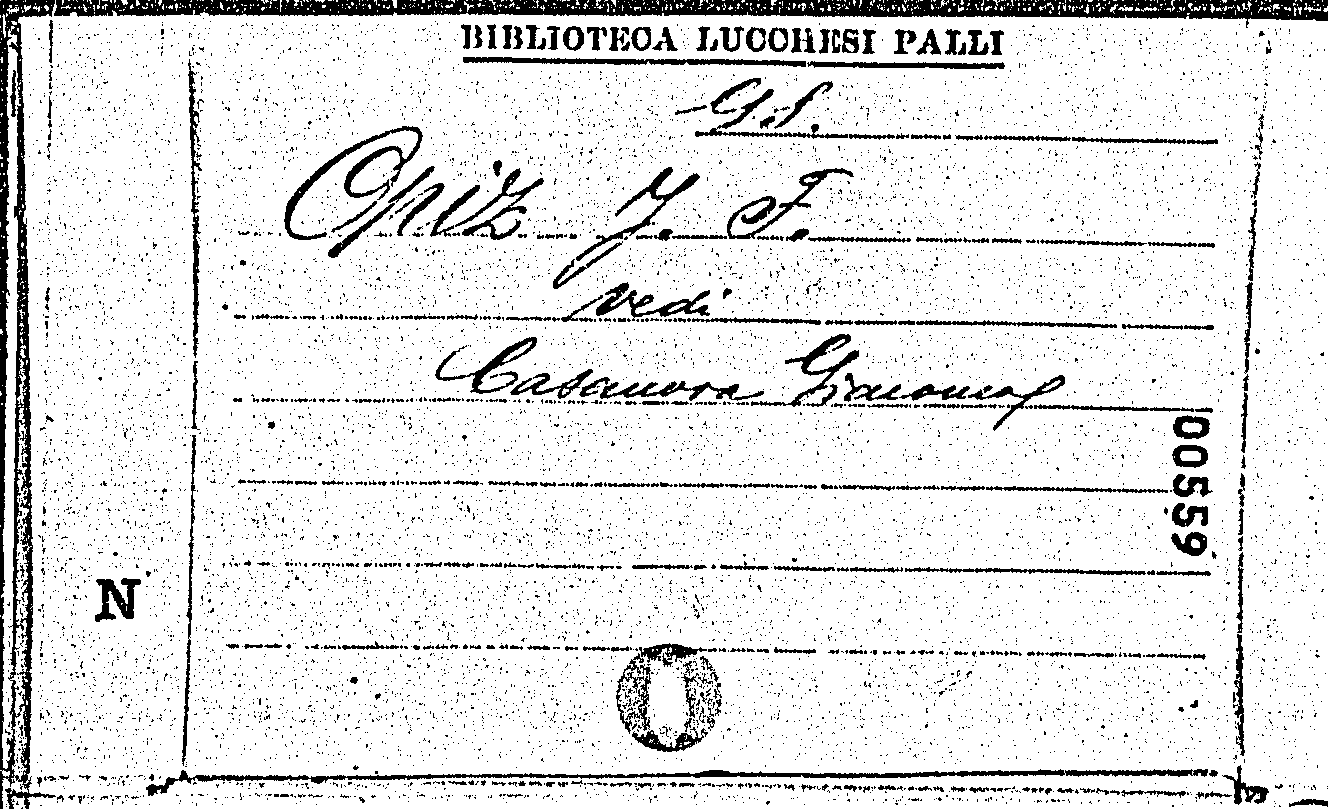 BIBLIOTECA LUCCHESI PALLI
G.S.
Opiz J. F.
vedi
Casanova Giacomo
00559
N